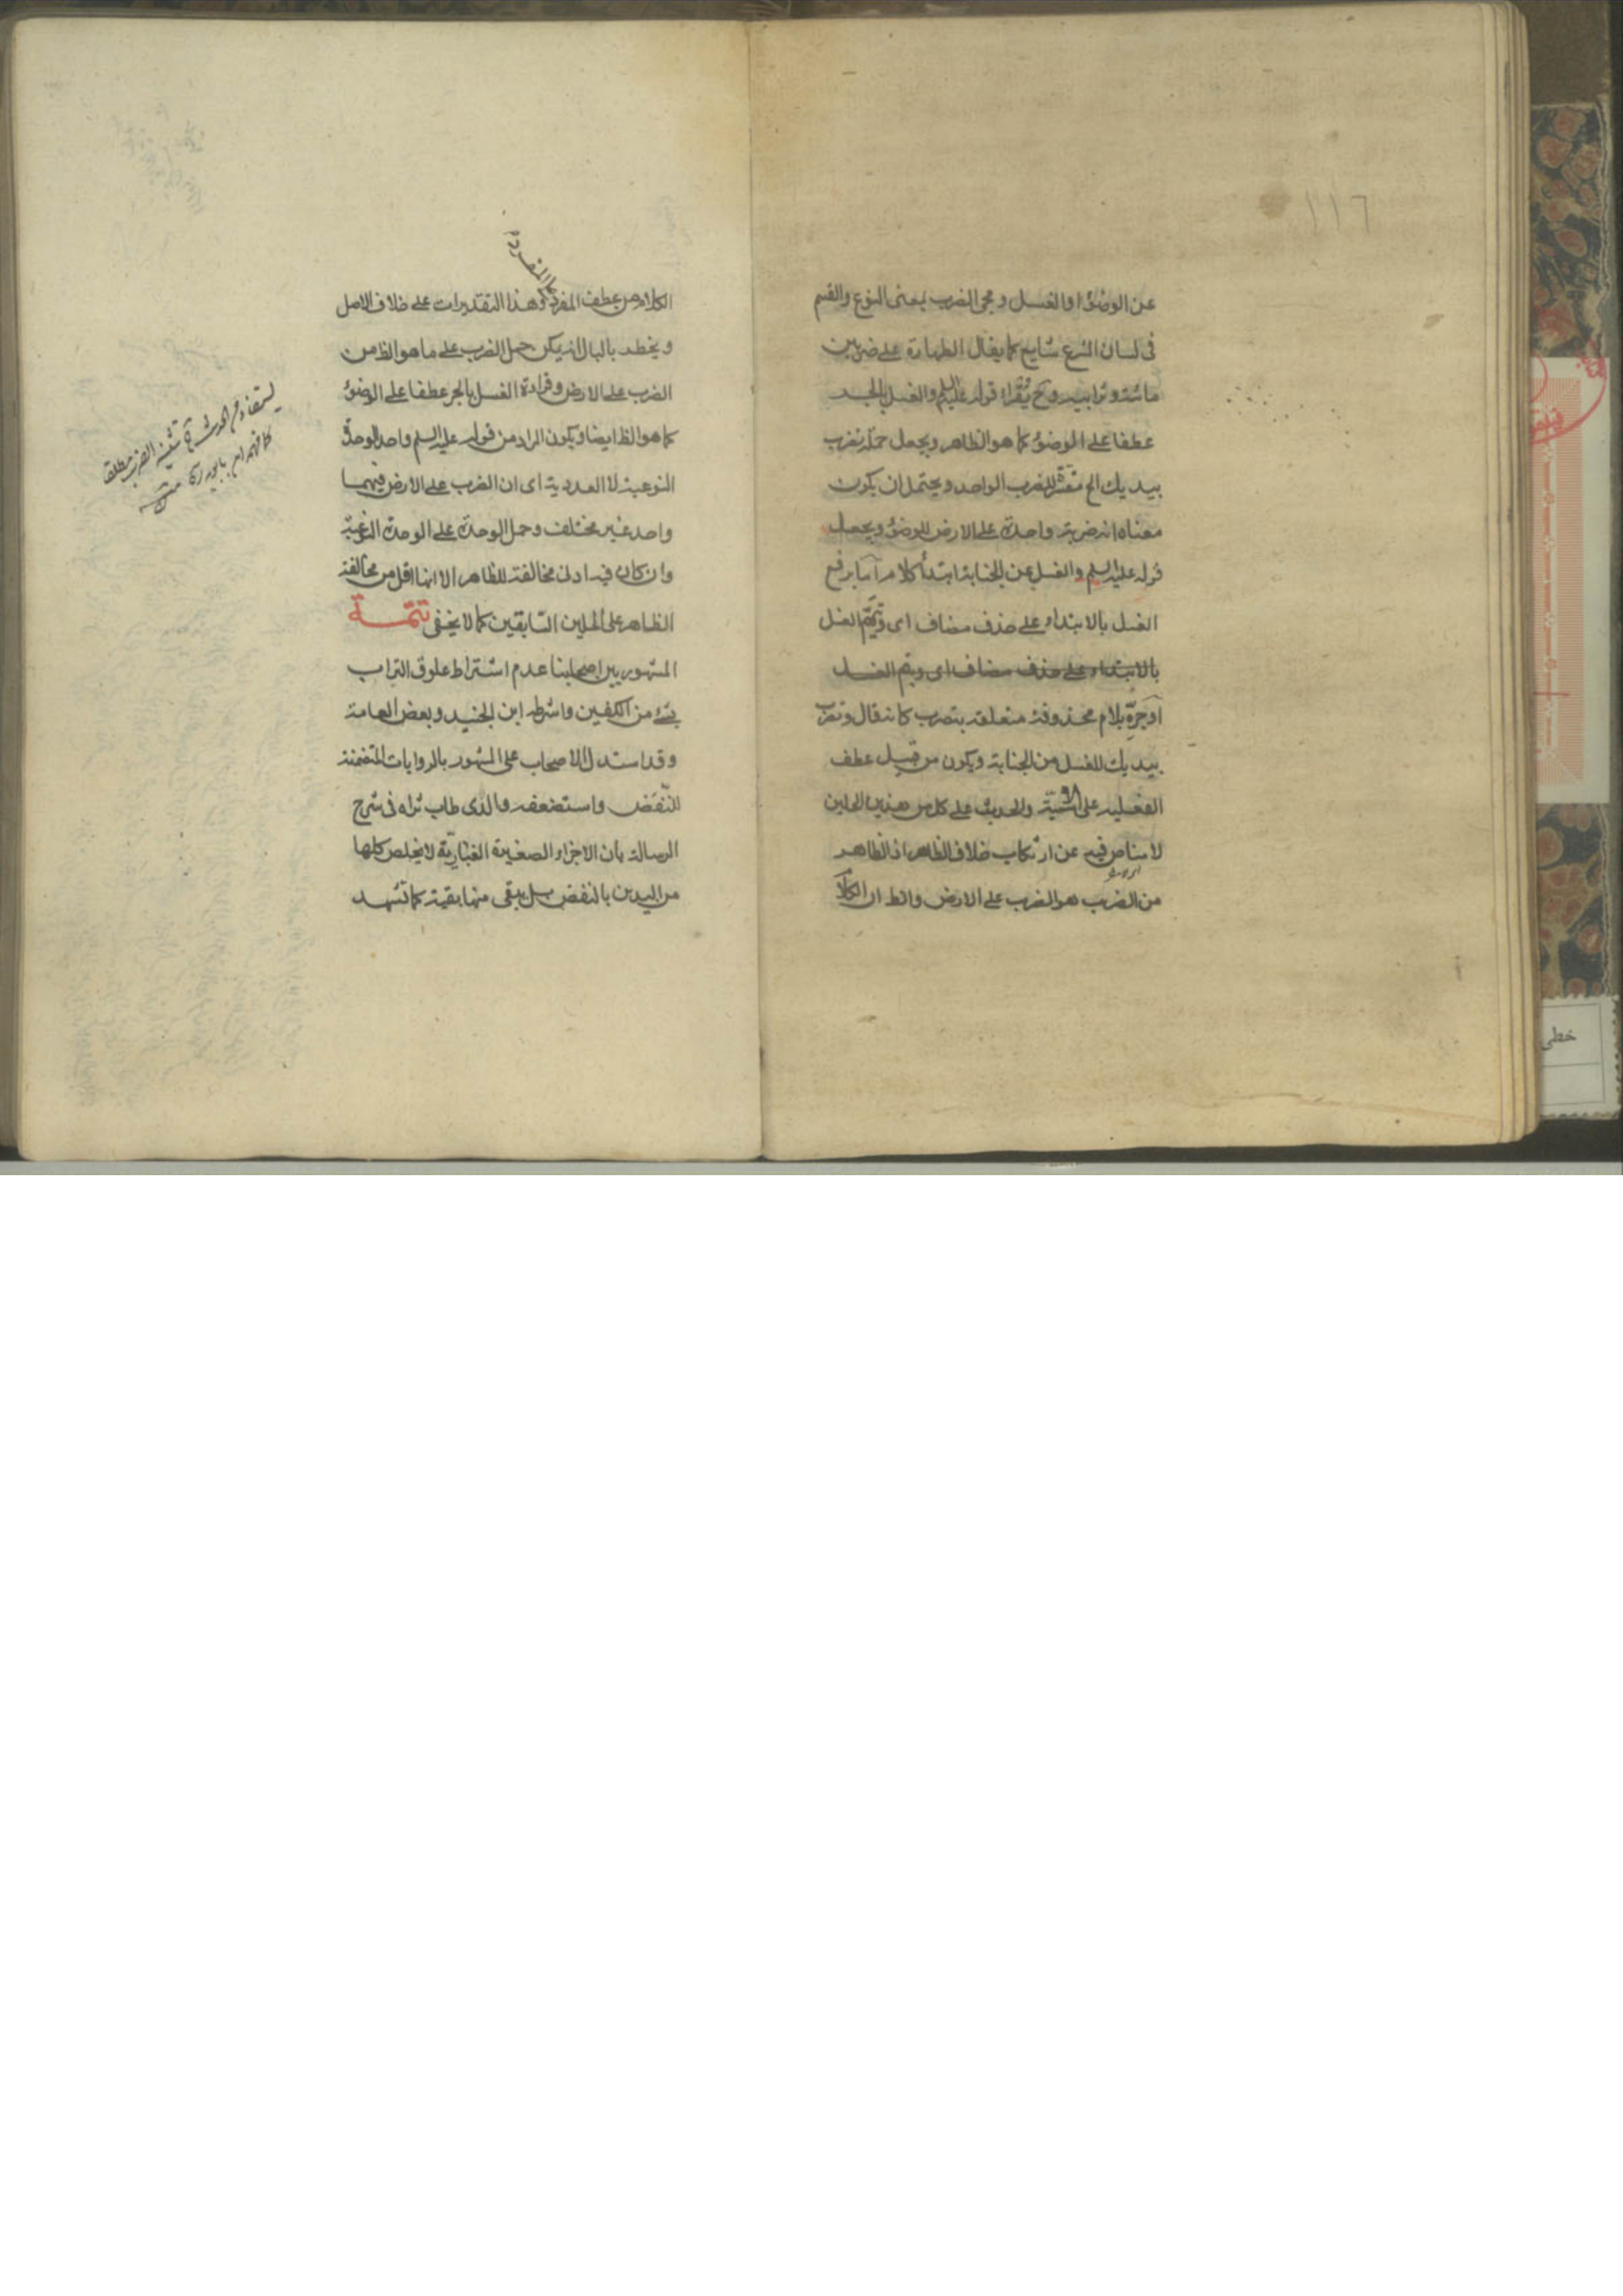 ١١٦
عن الوضوء او الغسل ومجئ الضرب بمعنى النوع والقسم
فى لسان الشرع شايع كما يقال الطهارة على ضربين
مائية وترابية وح يقراء قوله عليه السلم والغسل بالجر
عطفا على الوضوء كما هو الظاهر ويجعل جملة تضرب
بيديك الخ مفسرة للضرب الواحد ويحتمل ان يكون
معناه انه ضربة واحدة على الارض للوضوء ويجعل
قوله عليه السلم والغسل من الجنابة ابتدأ كلام آخر برفع
الغسل بالابتداء على حذف مضاف اى وتيمم الغسل
بالابتداء على حذف مضاف اى وتيمم الغسل
او جره بلام محذوفة متعلقة بتضرب كانه قال وتضرب
بيديك للغسل من الجنابة ويكون من قبيل عطف
الفعلية على الاسمية والحديث على كل من هذين الحملين
لا مناص فيه عن ارتكاب خلاف الظاهر اذ الظاهر
من الضرب هو الضرب على الارض والظ ان الكلام
الكلام من عطف المفرد على المفرد وهذا التقديرات على خلاف الاصل
ويخطر بالبال انه يمكن حمل الضرب على ما هو الظ من
الضرب على الارض وقراءة الغسل بالجر عطفا على الوضوء
كما هو الظ ايضا ويكون المراد من قوله عليه السلم واحد الوحدة
النوعية لا العددية اى ان الضرب على الارض فيهما
واحد غير مختلف وحمل الوحدة على الوحدة النوعية
وان كان فيه ادنى مخالفة للظاهر الا انها اقل من مخالفة
الظاهر على الحملين السابقين كما لا يخفى تتمة
المشهور بين اصحابنا عدم اشتراط علوق التراب
بشئ من الكفين واشترطه ابن الجنيد وبعض العامة
وقد استدل الاصحاب على المشهور بالروايات المتضمنة
للنفض واستضعفه والدى طاب ثراه فى شرح
الرسالة بان الاجزاء الصغيرة الغبارية لا يخلص كلها
من اليدين بالنفض بل يبقى منها بقية كما تشهد
خطى